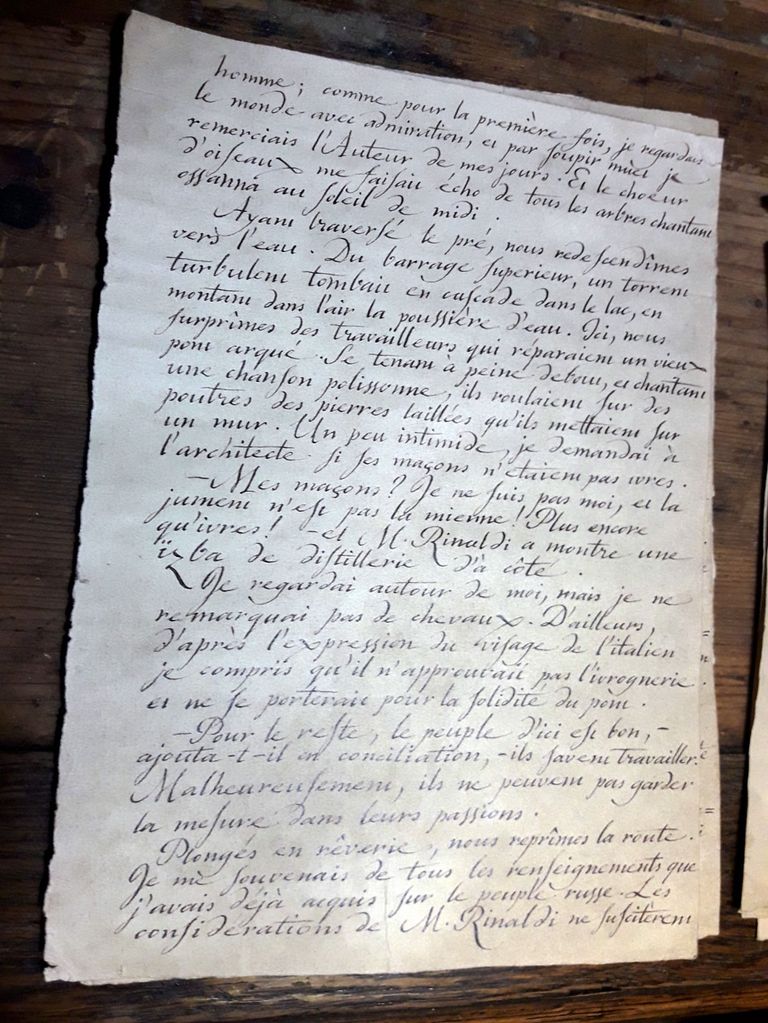 homme; comme pour la première fois, je regardais
le monde avec admiration, et par soupir müet je
remerciais l'Auteur de mes jours. Et le choeur
d'oiseaux me faisait écho de tous les arbres chantant
ossanna au soleil de midi.
Ayant traversé le pré, nous redescendîmes
vers l'eau. Du barrage superieur, un torrent
turbulent tombait en cascade dans le lac, en
montant dans l'air la poussière d'eau. Ici, nous
surprîmes des travailleurs qui réparaient un vieux
pont arqué. Se tenant à peine debout, et chantant
une chanson polissonne, ils roulaient sur des
poutres des pierres taillées qu'ils mettaient sur
un mur. Un peu intimide, je demandai à
l'architecte si ses maçons n'etaient pas ivres.
-Mes maçons? Je ne suis pas moi, et la
jument n'est pas la mienne! Plus encore
qu'ivres! -et M. Rinaldi a montre une
ïzba de distillerie d'à côte.
Je regardai autour de moi, mais je ne
remarquai pas de chevaux. D'ailleurs,
d'après l'expression du visage de l'italien
je compris qu'il n'approuvait pas l'ivrognerie
et ne se porterait pour la solidité du pont.
-Pour le reste, le peuple d'ici est bon,-
ajouta-t-il en conciliation, -ils savent travailler.
Malheureusement, ils ne peuvent pas garder
la mesure dans leurs passions.
Plongés en rêverie, nous reprîmes la route.
Je me souvenais de tous les renseignements que
j'avais déjà acquis sur le peuple russe. Les
considerations de M. Rinaldi ne suscitèrent